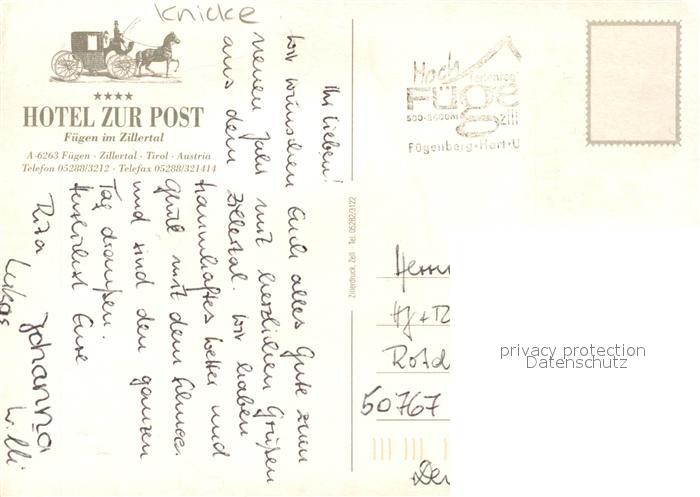 Knicke
★★★★
HOTEL ZUR POST
Fügen im Zillertal
A-6263 Fügen · Zillertal · Tirol · Austria
Telefon 05288/3212 · Telefax 05288/321414
Ihr Lieben!
Wir wünschen Euch alles Gute zum
neuen Jahr mit herzlichen Grüßen
aus dem Zillertal. Wir haben
traumhaftes Wetter und
gut mit dem Schnee
und sind den ganzen
Tag draußen.
Herzlichst Eure
Rita
Johanna
Lukas
Willi
Zillerdruck, Zell · Tel. 05282/3122
Hoch
Ferienreg
Füge
500-2500m
Zill
Fügenberg·Hart·U
Herrn
50767
privacy protection
Datenschutz